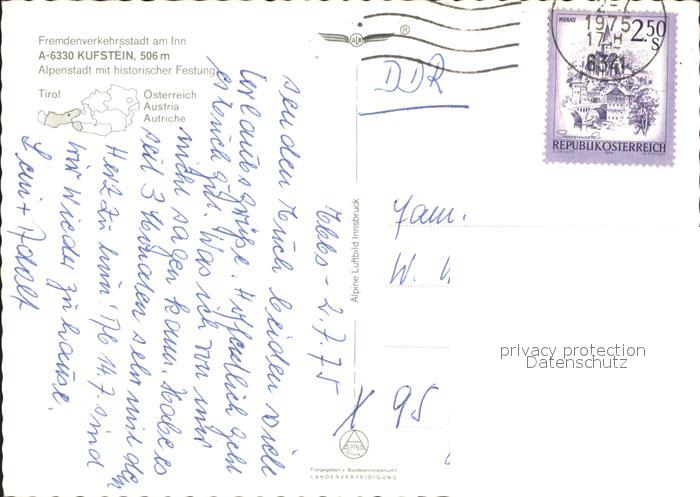 Fremdenverkehrsstadt am Inn
A-6330 KUFSTEIN, 506 m
Alpenstadt mit historischer Festung
Tirol
Österreich
Austria
Autriche
®
DDR
MURAU
2.50
S
Steiermark
REPUBLIK ÖSTERREICH
1975
17 H
6341
Ebbs - 2.7.75
senden Euch beiden viele
Urlaubsgrüße. Hoffentlich geht
es Euch gut. Was ich von mir
nicht sagen kann. Habe es
seit 3 Monaten sehr mit dem
Herz zu tun! Ab 14.7. sind
wir wieder zu hause.
Leni + Adolf
Alpine Luftbild Innsbruck
Fam.
W.
X 95
ALPINE
Freigegeben v. Bundesministerium f.
LANDESVERTEIDIGUNG
privacy protection
Datenschutz